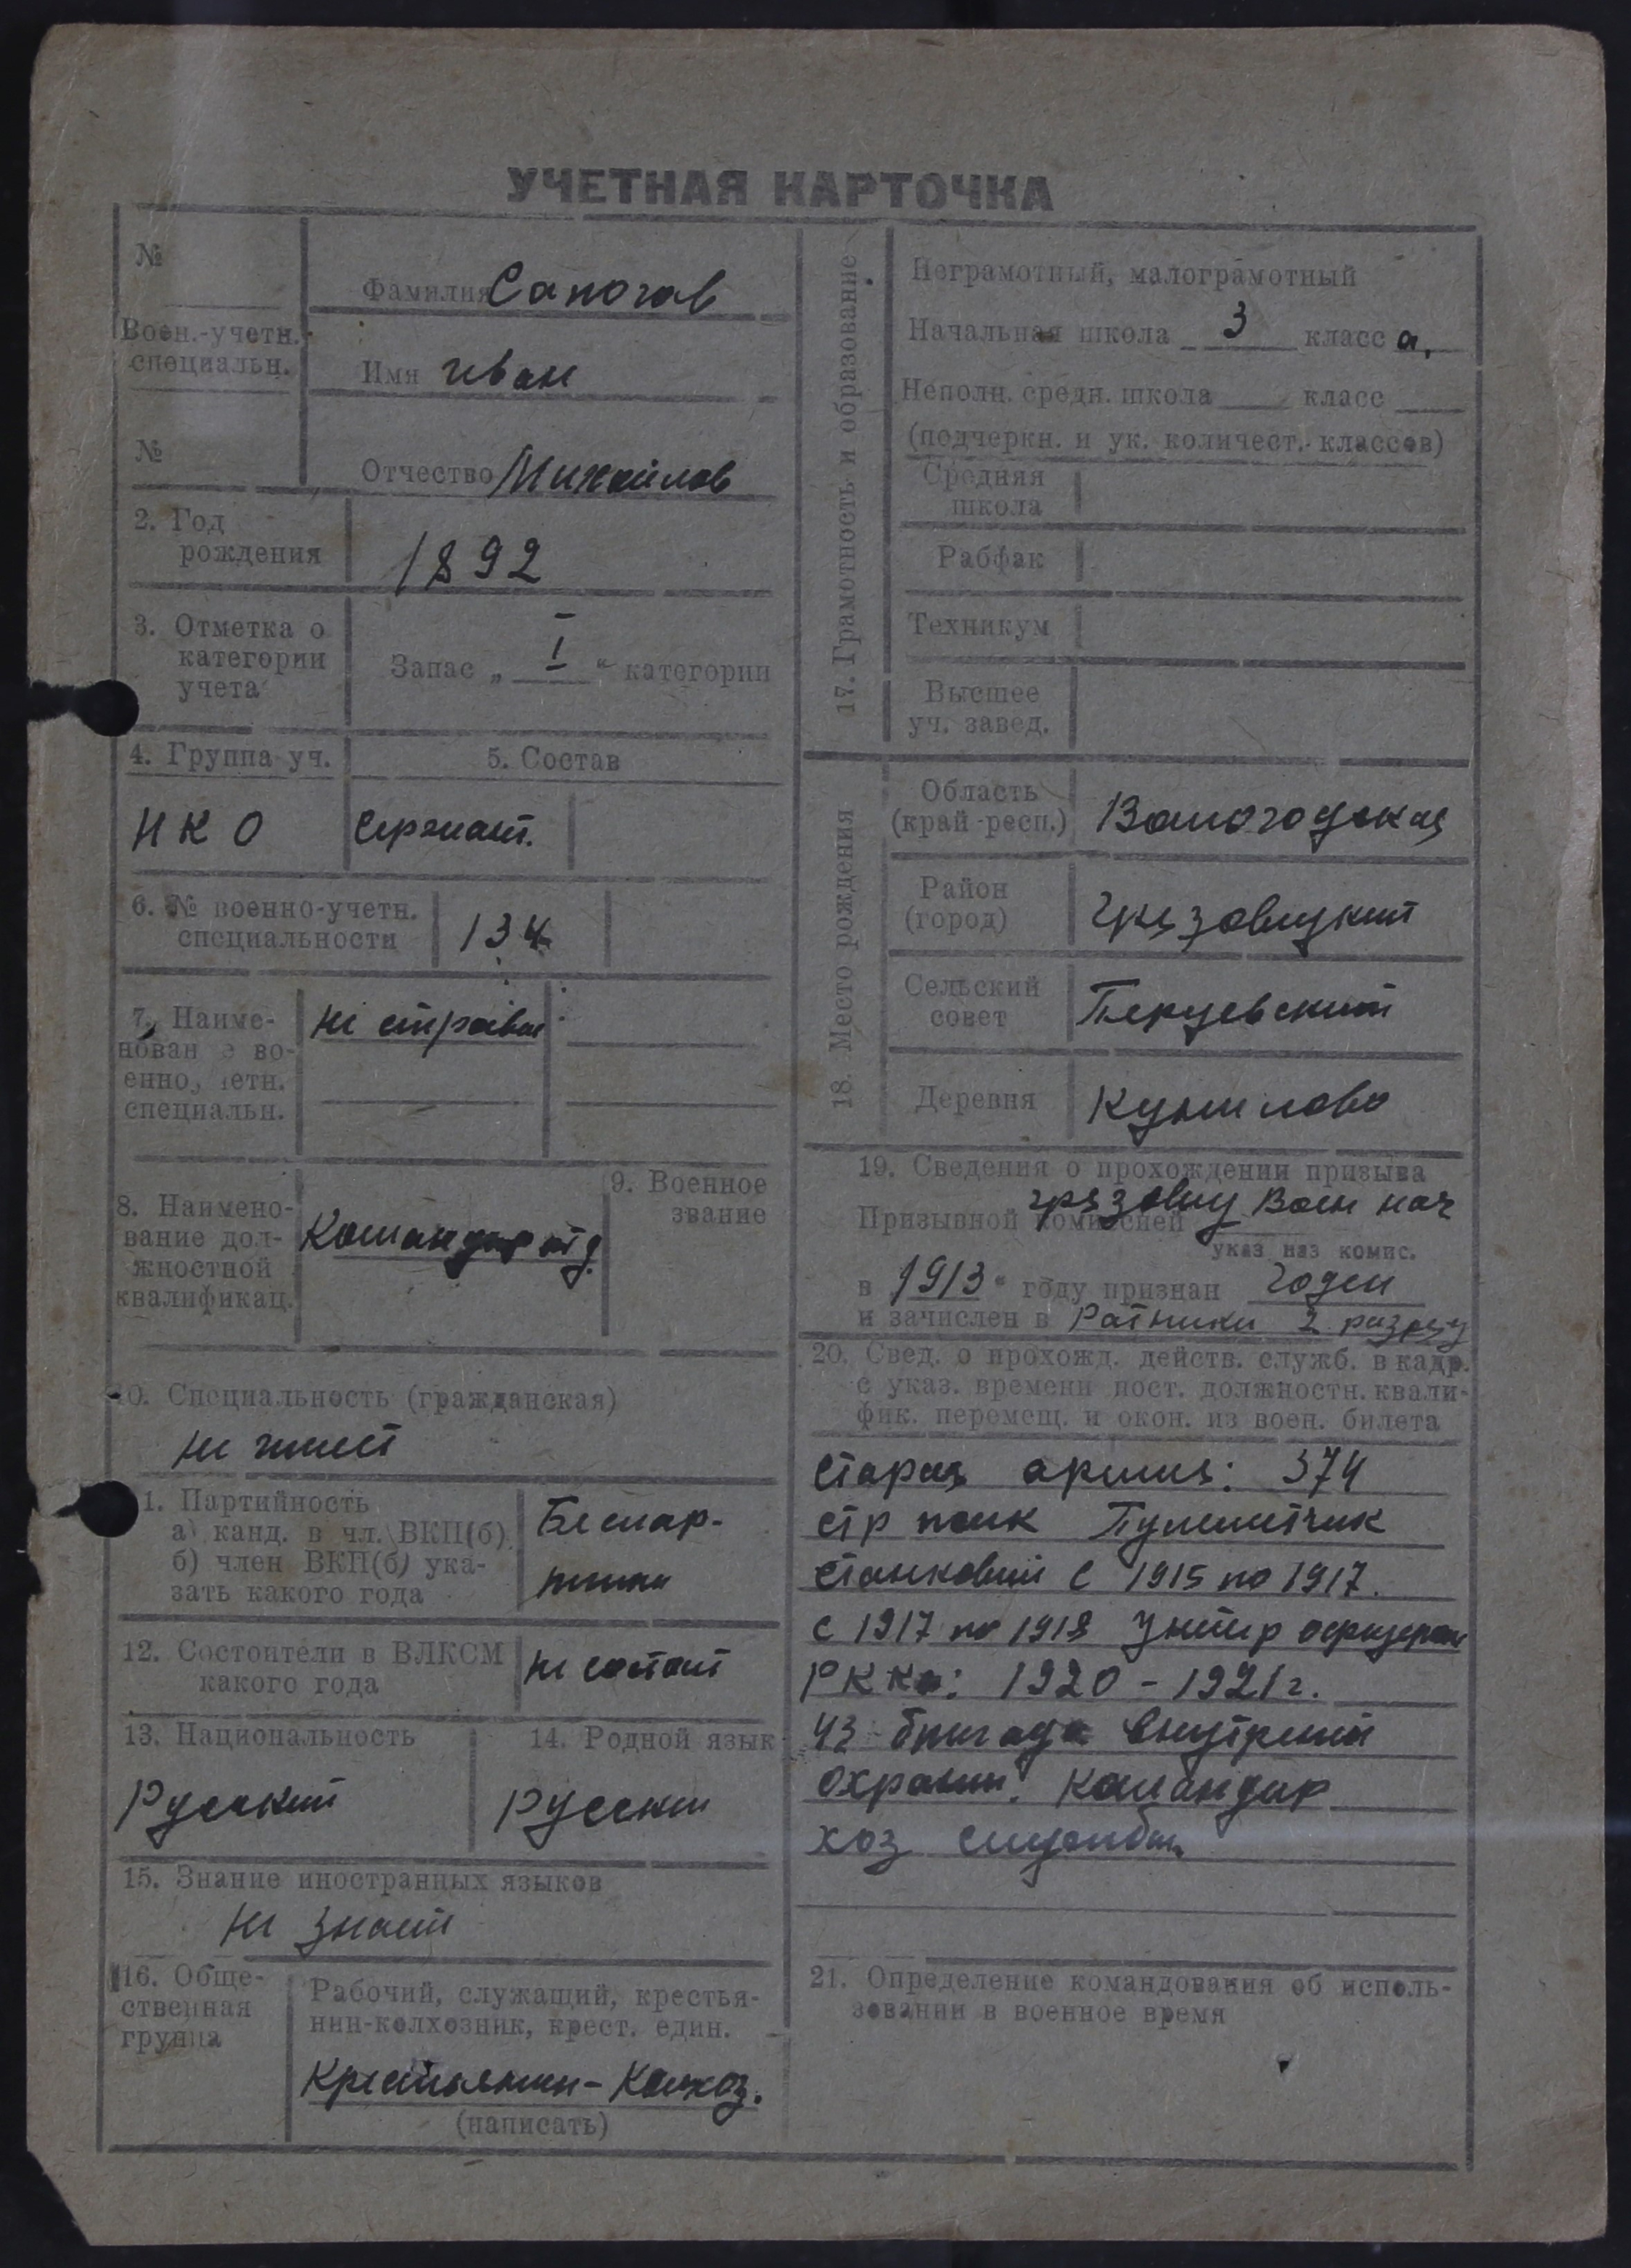 УЧЕТНАЯ КАРТОЧКА
№
Воен.-учетн.
специальн.
№
Фамилия Сапогов
Имя Иван
Отчество Михайлов
2. Год
рождения
1892
3. Отметка о
категории
учета
Запас „ I " категории
4. Группа уч.
5. Состав
НКО
Сержант.
6. № военно-учетн.
специальности
134
7. Наиме-
нован е во-
енно, четн.
специальн.
8. Наимено-
вание дол-
жностной
квалификац.
Командир отд.
9. Военное
звание
10. Специальность (гражданская)
не имеет
1. Партийность
а) канд. в чл. ВКП(б)
б) член ВКП(б) ука-
зать какого года
Беспар-
тийн
12. Состоит ли в ВЛКСМ
какого года
не состоит
13. Национальность
Русский
14. Родной язык
Русский
15. Знание иностранных языков
не знает
16. Обще-
ственная
группа
Рабочий, служащий, крестья-
нин-колхозник, крест. един.
Крестьянин-Колхоз.
(написать)
17. Грамотность и образование
Неграмотный, малограмотный
Начальная школа 3 класс а.
Неполн. средн. школа класс
(подчеркн. и ук. количест. классов)
Средняя
школа
Рабфак
Техникум
Высшее
уч. завед.
18. Место рождения
Область
(край-респ.)
Вологодская
Район
(город)
Грязовецкий
Сельский
совет
Перцевский
Деревня
19. Сведения о прохождении призыва
Призывной комиссией Грязовец Воен нач
указ наз комис.
в 1913 году признан годен
и зачислен в Ратники 2 разряд
20. Свед. о прохожд. действ. служб. в кадр.
с указ. времени пост. должностн. квали-
фик. перемещ. и окон. из воен. билета
Старая армия: 374
стр полк Пулеметчик
станковый с 1915 по 1917.
с 1917 по 1918 Унтер офицером
РККА: 1920-1921 г.
43 бригада внутреней
охраны. командир
хоз службы
21. Определение командования об исполь-
зовании в военное время